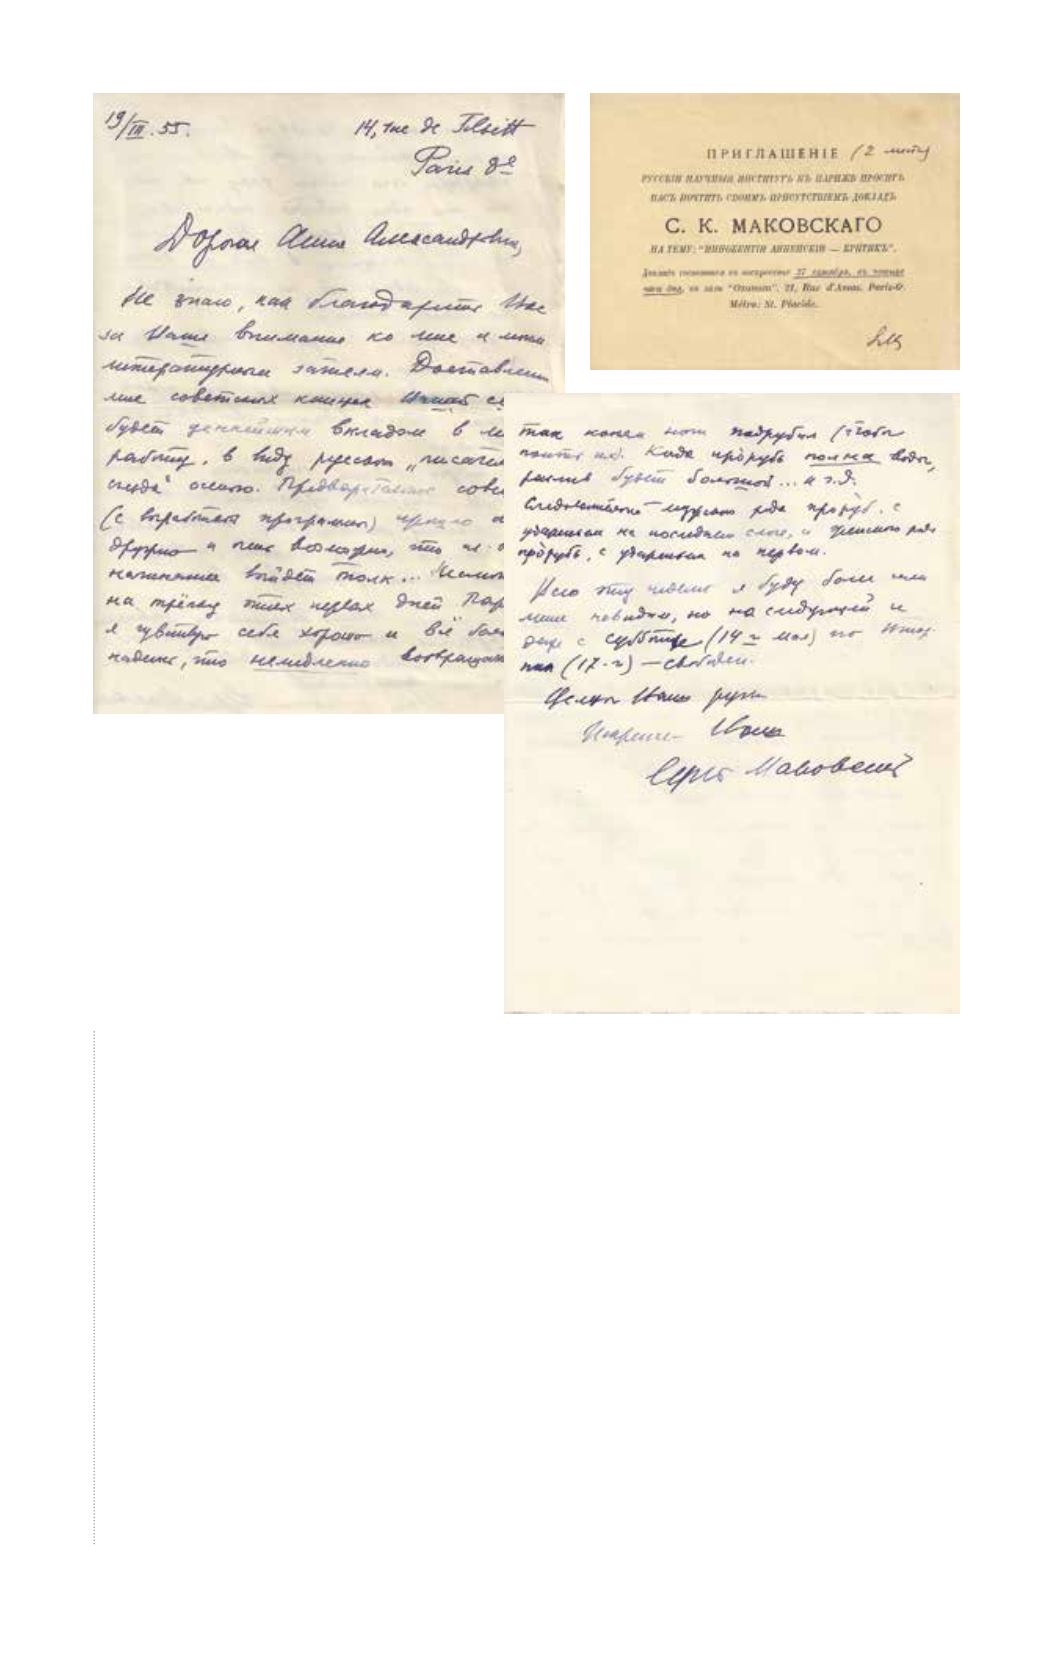 19/III.55.
14, rue de Tilsitt
Paris 8e
Дорогая Анна Александровна,
Не знаю, как благодарить Вас
за Ваше внимание ко мне и моим
литературным затеям. Доставлени
мне советских книжек
будет ценнейшим вкладом в
работу, в виду русского „писател
съезда“ осенью. Предварительное сове
(с выработкой программы) прошло
дружно и
начинания выйдет толк... Несмот
на трёпку этих первых дней Пар
я чувствую себя хорошо и всё бол
надеюсь, что немедленно возвращаю
ПРИГЛАШЕНІЕ (2 места)
РУССКІЙ НАУЧНЫЙ ИНСТИТУТЪ ВЪ ПАРИЖѢ ПРОСИТЪ
ВАСЪ ПОЧТИТЬ СВОИМЪ ПРИСУТСТВІЕМЪ ДОКЛАДЪ
С. К. МАКОВСКАГО
НА ТЕМУ: "ИННОКЕНТІЙ АННЕНСКІЙ — КРИТИКЪ".
Докладъ состоится въ воскресенье 27 въ
часа дня, въ залѣ "Ozanam". 21, Rue d'Assas. Paris-6.
Métro: St. Placide.
так копем подрубил (чтобы
Када прорубь полна воды,
разлив будет большой... и т.д.
Следовательно мужского рода проруб, с
ударением на последнем слоге, и женского рода
прорубь, с ударением на первом.
Всю эту неделю я буду более или
менее невидим, но на следующей
с субботы (14-г мая) по
(17-г) — свободен.
Целую Ваши руки
Искренне Ваш
Сергей Маковский